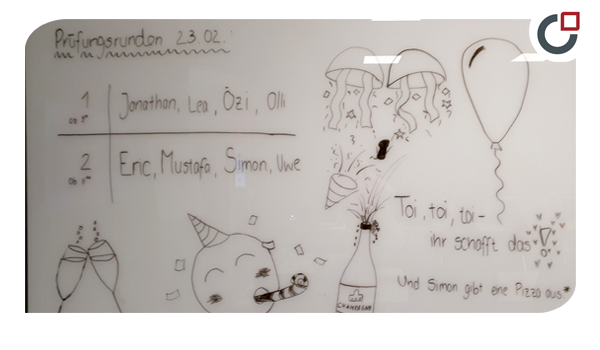 Prüfungsrunden 23.02.:
1 Jonathan, Lea, Özi, Olli
ab
2 Eric, Mustafa, Simon, Uwe
ab
Toi, toi, toi -
ihr schafft das !
Und Simon gibt eine Pizza aus.*
CHAMPAGNE